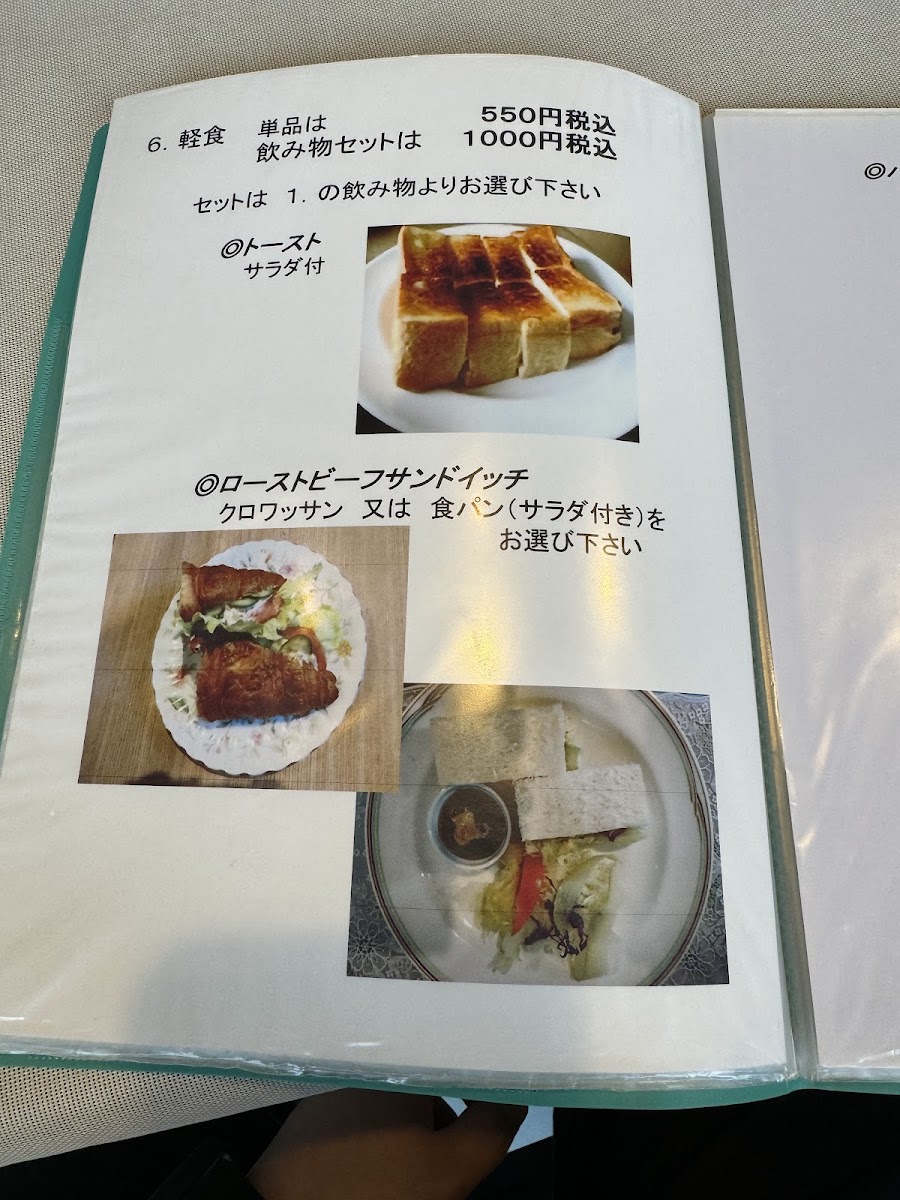 6. 軽食 単品は 550円税込
飲み物セットは 1000円税込
セットは 1. の飲み物よりお選び下さい
◎トースト
サラダ付
◎ローストビーフサンドイッチ
クロワッサン 又は 食パン(サラダ付き)を
お選び下さい
◎